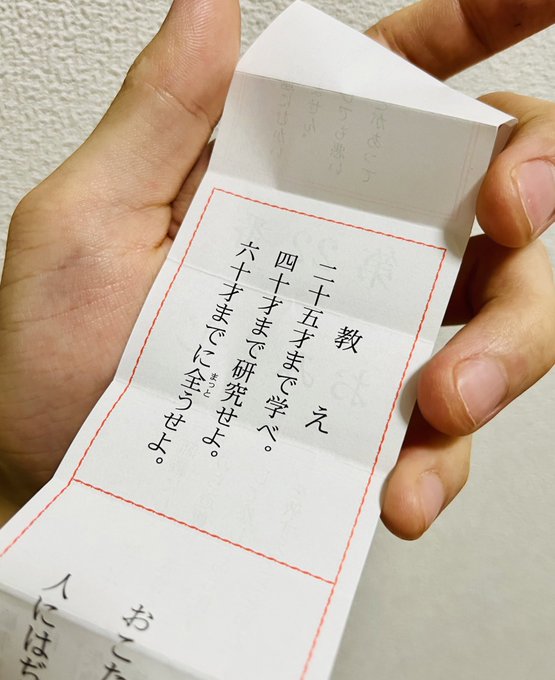 教え
二十五才まで学べ。
四十才まで研究せよ。
六十才までに全うせよ。
まっと
おこた
人にはぢ